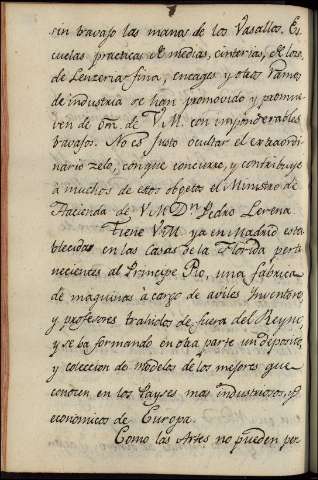 sin travajo las manos de los Vasallos. Es
cuelas practicas de medias, cinterias, de loza,
de Lenzeria fina, encages y otros ramos
de industria se han promovido y promue
ven de orn. de V.M. con imponderables
travajos. No es justo ocultar el extraordi
nario zelo, con que concurre, y contribuye
à muchos de estos objetos el Ministro de
Hacienda de V.M. Dn. Pedro Lerena
Tiene V.M. ya en Madrid esta
blecidas en las Casas de la Florida, perte
necientes al Principe Pio, una fabrica
de maquinas à cargo de aviles Inventores,
y profesores trahidos de fuera del Reyno,
y se ba formando en otra parte un deposito,
y coleccion de modelos de los mejores que
conocen en los Payses mas industriosos, y
economicos de Europa.
Como las Artes no pueden per